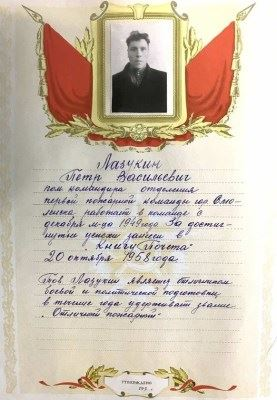 Лазукин
Петр Васильевич
пом. командира отделения
первой пожарной команды гор. Смо-
ленска, работает в команде с
декабря м-ца 1949 года. За достиг-
нутые успехи занесен в
„Книгу Почета"
20 октября 1958 года
Тов. Лазукин является отличником
боевой и политической подготовки,
в течение года удерживает звание
„Отличный пожарный".
УТВЕРЖДЕНО